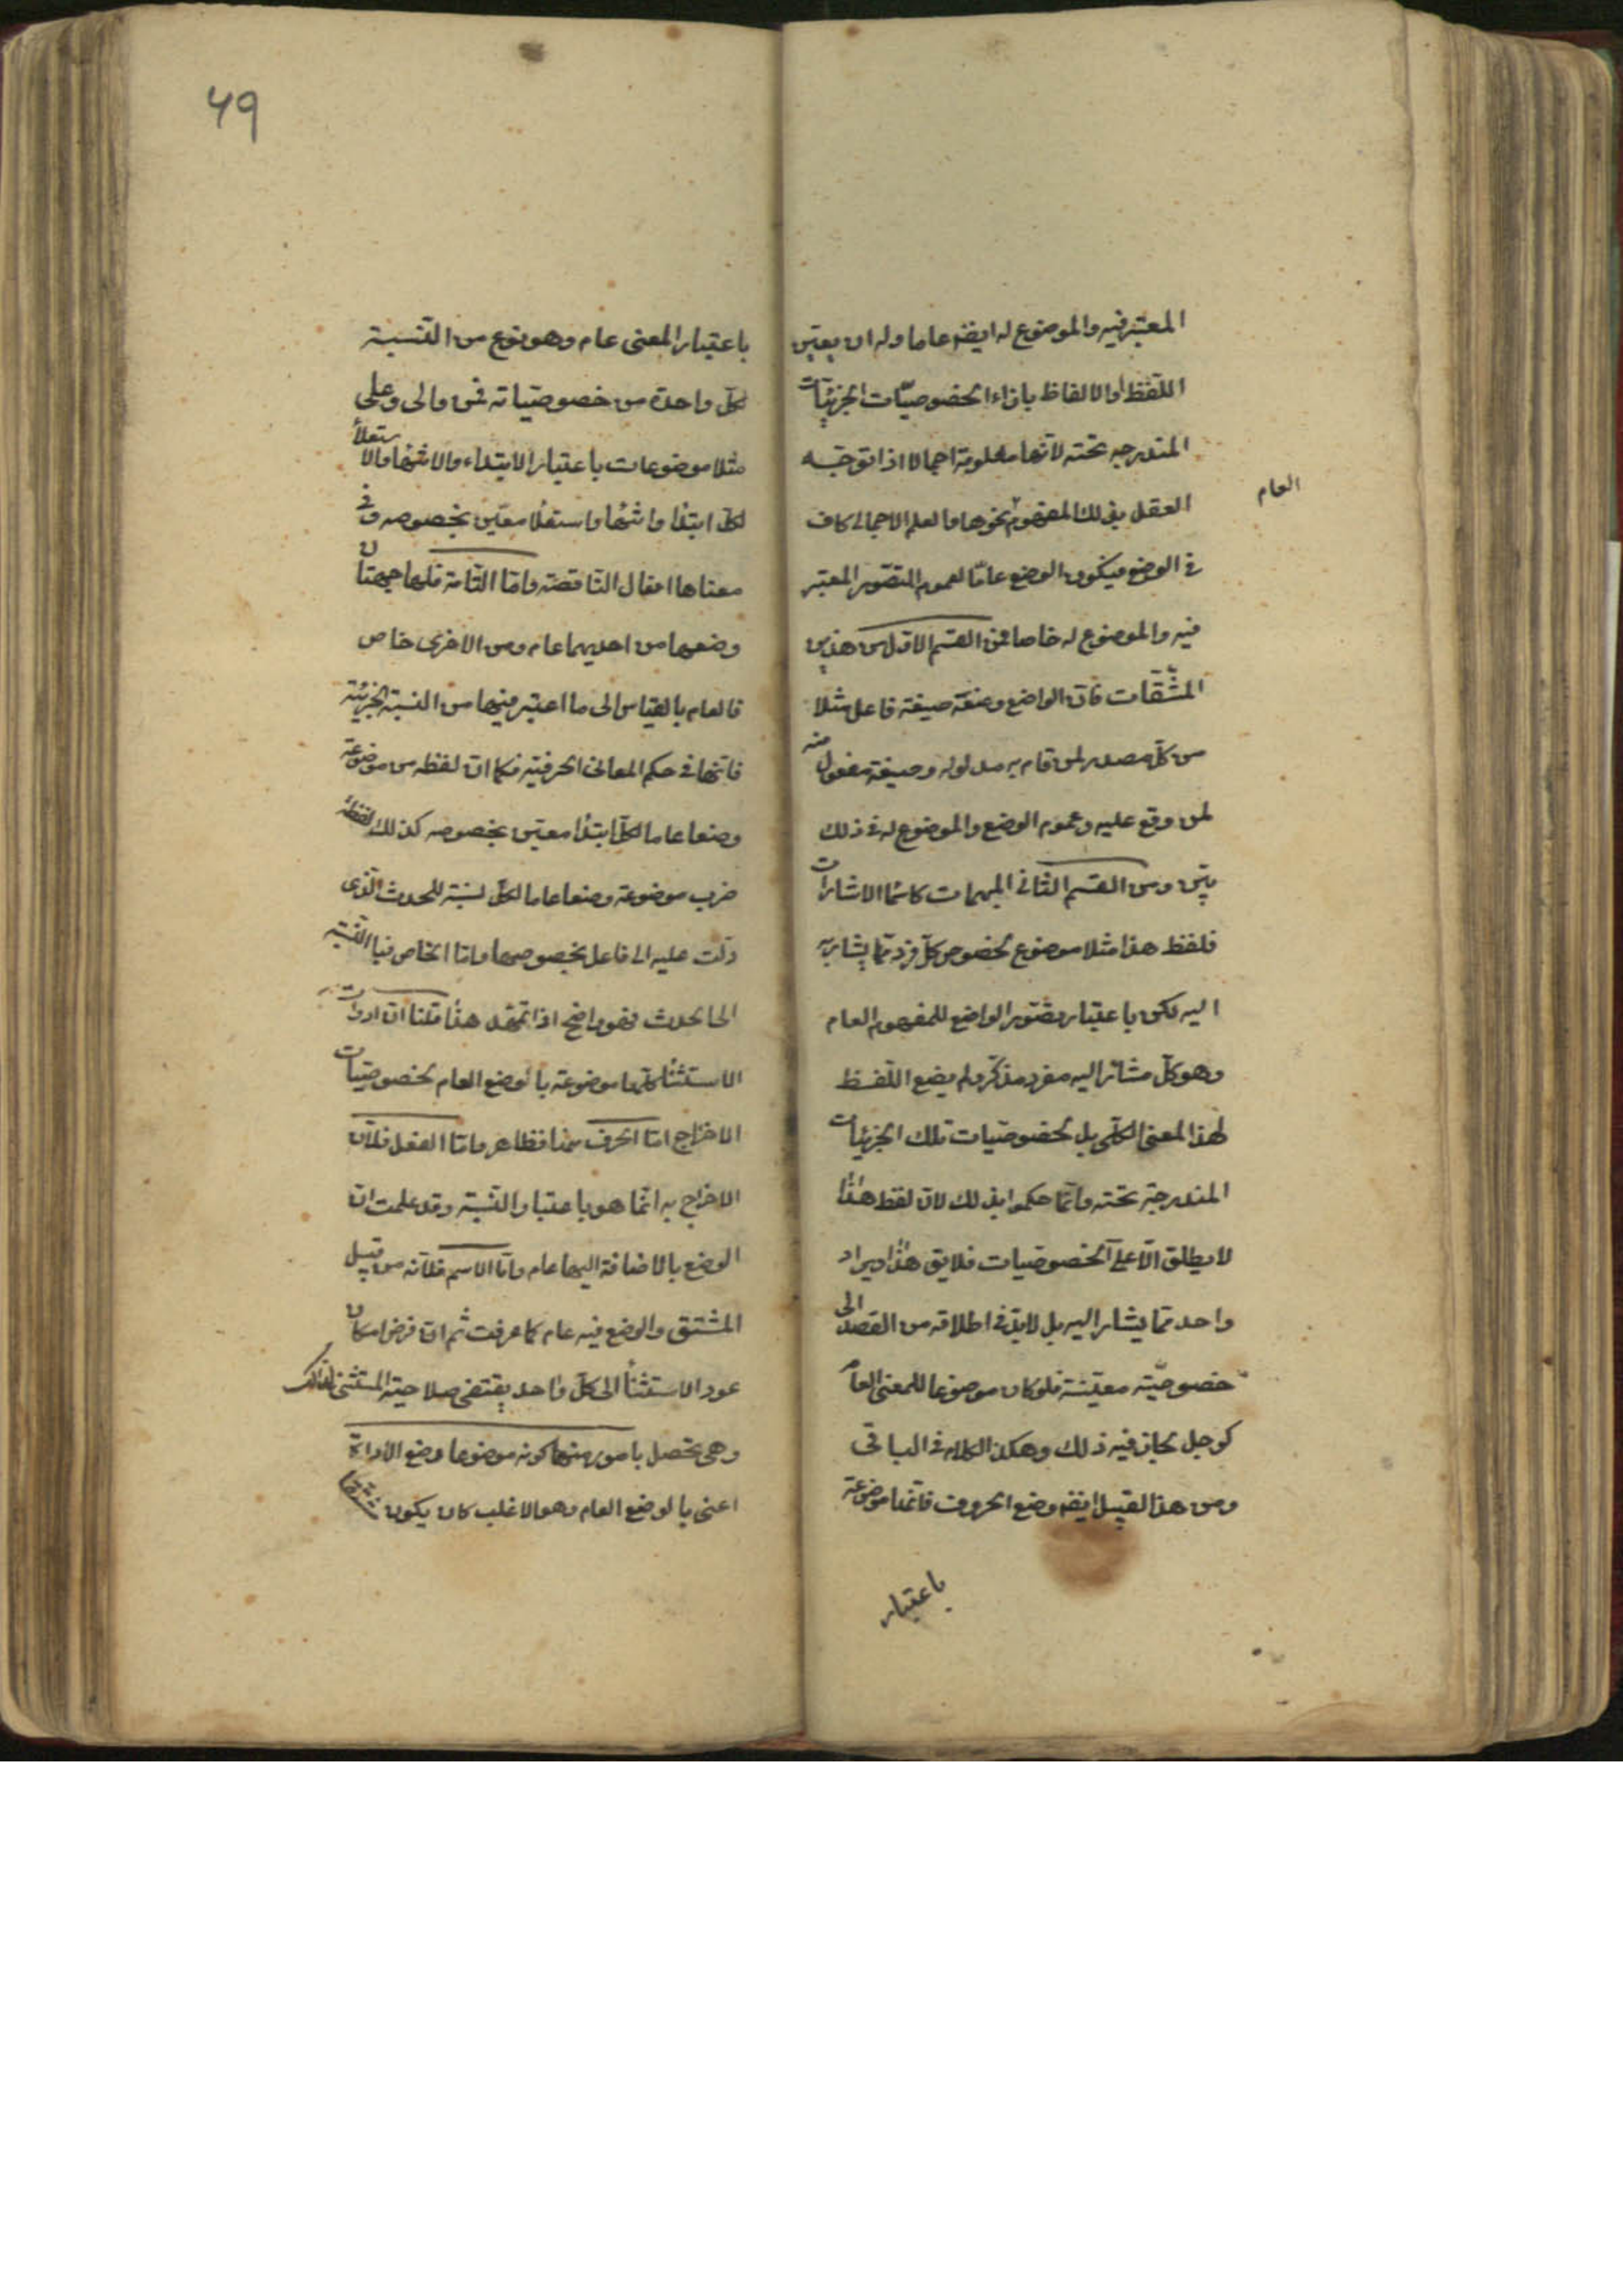 المعتبر فيه والموضوع له ايضه عاما وله ان يعين
اللفظ او الالفاظ بازاء الخصوصيّات الجزئيات
المندرجه تحته لانها معلومة اجمالا اذا توجّه
العقل بذلك المفهوم نحوها والعلم الاجمالى كاف
العام
فى الوضع فيكون الوضع عامّا لعموم التصوّر المعتبر
فيه والموضوع له خاصا فمن القسم الاوّل من هذين
المشتقّات فانّ الواضع وضع صيغة فاعل مثلا
من كلّ مصدر لمن قام به مدلوله وصيغة مفعول منه
لمن وقع عليه وعموم الوضع والموضوع له فى ذلك
بيّن ومن القسم الثانى المبهمات كاسما الاشارات
فلفظ هذا مثلا موضوع لخصوص كلّ فرد ممّا يشار به
اليه لكن باعتبار تصوّر الواضع للمفهوم العام
وهو كلّ مشار اليه مفرد مذكّر ولم يضع اللّفظ
لهذا المعنى الكلّى بل لخصوصيّات تلك الجزئيات
المندرجة تحته وانّما حكموا بذلك لانّ لفظ هذا
لا يطلق الّا على الخصوصيات فلا يق هذا ويراد
واحد ممّا يشار اليه بل لا بدّ فى اطلاقه من القصد الى
خصوصيّة معيّنة فلو كان موضوعا للمعنى العام
كرجل لجاز فيه ذلك وهكذا الكلام فى الباقى
ومن هذا القبيل ايضه وضع الحروف فانّها موضوعة
باعتبار
٦٩
باعتبار المعنى عام وهو نوع من النّسبة
لكلّ واحدة من خصوصيّاته فمن والى وعلى
مثلا موضوعات باعتبار الابتداء والانتها والاستعلا
لكلّ ابتدا وانتها واستعلا معيّن بخصوصه وفى
معناها افعال الناقصة وامّا التّامة فلها جهتان
وضعها من احديهما عام ومن الاخرى خاص
فالعام بالقياس الى ما اعتبر فيها من النسبة الجزئية
فانّها فى حكم المعانى الحرفيّه فكما انّ لفظه من موضوعة
وضعا عاما لكلّ ابتدا معيّن بخصوصه كذلك لفظة
ضرب موضوعة وضعا عاما لكلّ نسبة للحدث الّذى
دلّت عليه الى فاعل بخصوصها وامّا الخاص فبالنّسبة
الى الحدث فهو واضح اذا تمهّد هذا قلنا انّ ادوات
الاستثنا كلّها موضوعة بالوضع العام لخصوصيّات
الاخراج امّا الحرف منها فظاهر وامّا الفعل فلانّ
الاخراج به انّما هو باعتبار النّسبة وقد علمت انّ
الوضع بالاضافة اليها عام وامّا الاسم فلانّه من قبيل
المشتق والوضع فيه عام كما عرفت ثم انّ فرض امكان
عود الاستثنا الى كلّ واحد يقتضى صلاحية المستثنى لذلك
وهى تحصل بامور منها كونه موضوعا وضع الاداة
اعنى بالوضع العام وهو الاغلب كان يكون مشتقا